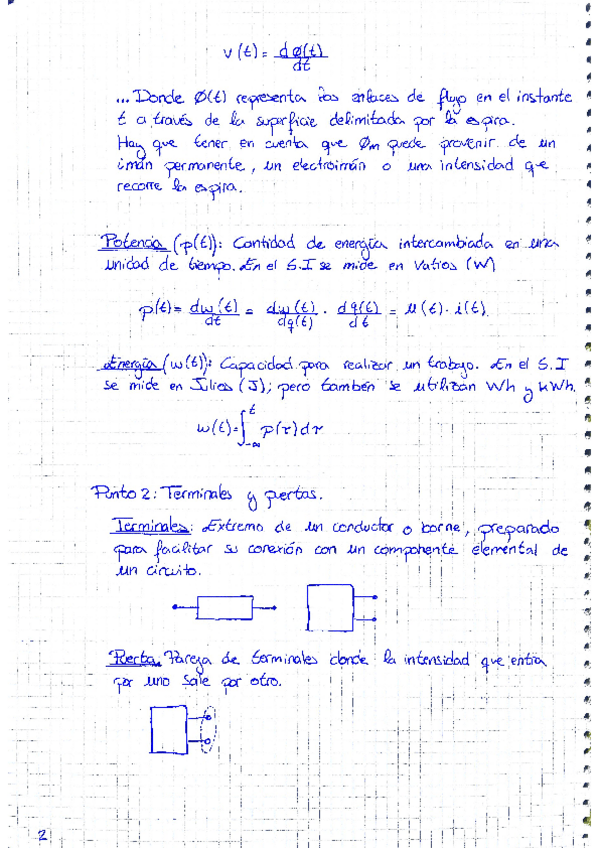 v(t) = dø(t)/dt
... Donde Ø(t) representa los enlaces de flujo en el instante
t a través de la superficie delimitada por la espira.
Hay que tener en cuenta que Øm puede provenir de un
imán permanente, un electroimán o una intensidad que
recorre la espira.
Potencia (p(t)): Cantidad de energía intercambiada en una
unidad de tiempo. En el S.I se mide en Vatios (W)
p(t) = dw(t)/dt = dw(t)/dq(t) · dq(t)/dt = u(t) · i(t)
Energía (w(t)): Capacidad para realizar un trabajo. En el S.I
se mide en Julios (J); pero también se utilizan Wh y kWh.
w(t) = ∫_{-∞}^{t} p(τ)dτ
Punto 2: Terminales y puertas.
Terminales: Extremo de un conductor o borne, preparado
para facilitar su conexión con un componente elemental de
un circuito.
Puerta. Pareja de terminales donde la intensidad que entra
por uno sale por otro.
2